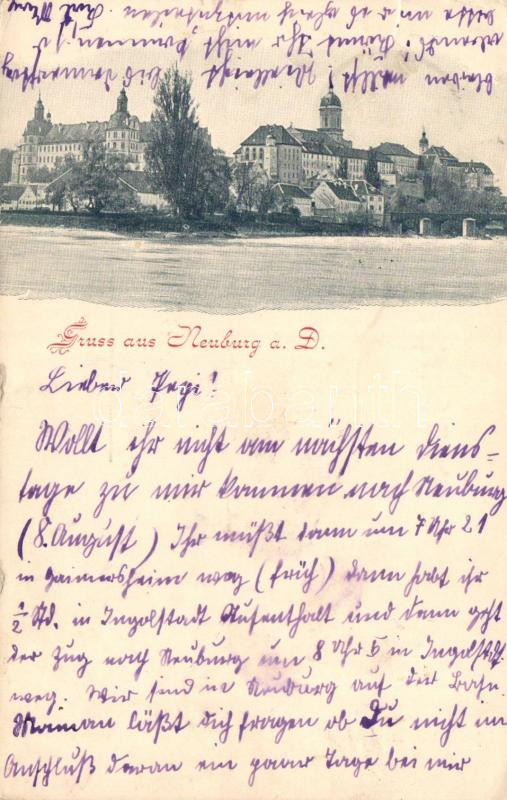 Gruss aus Neuburg a. D.
Lieber Pepi!
Wollt ihr nicht am nächsten Diens-
tage zu mir kommen nach Neuburg
(8. August) Ihr müßt dann um 7 Uhr 21
in Gaimersheim weg (früh) dann habt ihr
1/2 Std. in Ingolstadt Aufenthalt und dann geht
der Zug nach Neuburg um 8 Uhr 5 in Ingolstadt
weg. Wir sind in Neuburg auf der Bahn
Maman läßt Dich fragen ob Du nicht im
Anschluß daran ein paar Tage bei mir
bleiben willst? Vielleicht bis Donnerstag
Abend. Könnt ihr nicht kommen, so
bitte
darabanth